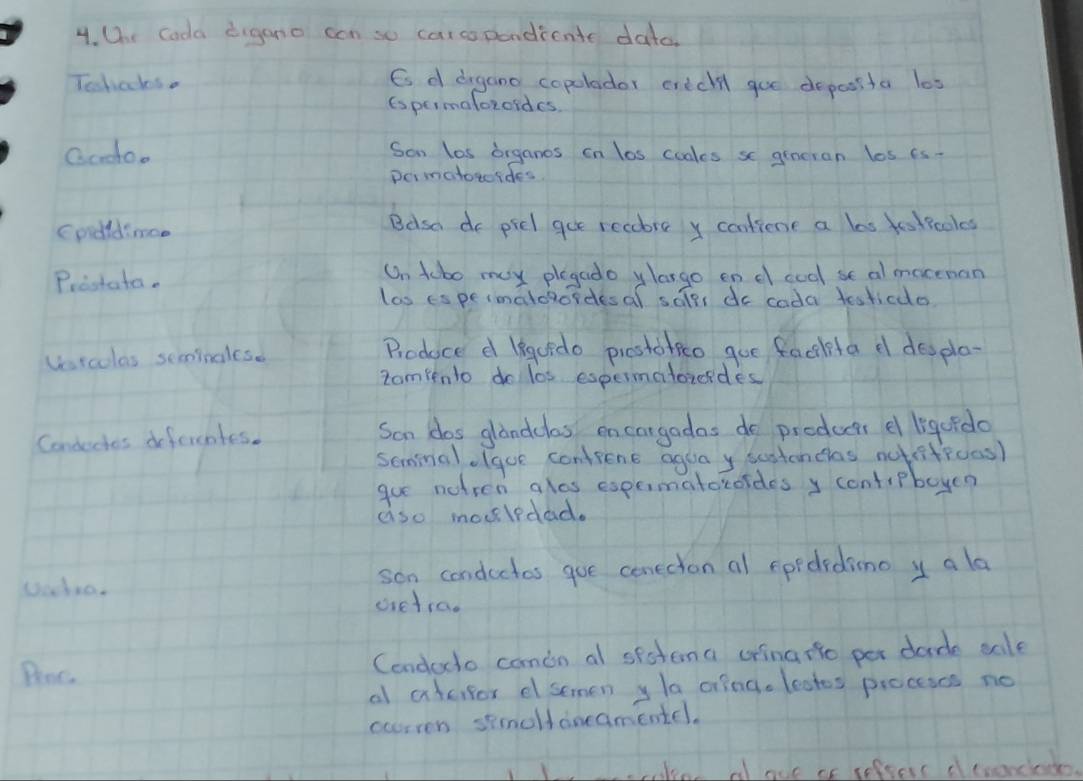 4. Une cada órgano con su correspondiente dato.
Testículos.
Es el órgano copulador eréctil que deposita los
espermatozoides.
Escroto.
Son los órganos en los cuales se generan los es-
permatozoides.
Epidídimo.
Bolsa de piel que recubre y contiene a los testículos
Próstata.
Un tubo muy plegado y largo en el cual se almacenan
los espermatozoides al salir de cada testículo.
Vesículas seminales.
Produce el líquido prostático que facilita el despla-
zamiento de los espermatozoides
Conductos deferentes.
Son dos glándulas encargadas de producir el líquido
seminal. (que contiene agua y sustancias nutritivas)
que nutren a los espermatozoides y contribuyen
a su movilidad.
Uretra.
son conductos que conectan al epidídimo y a la
uretra.
Pene.
Conducto común al sistema urinario por donde sale
al exterior el semen y la orina. (estos procesos no
ocurren simultáneamente).
al que se refiere el enunciado